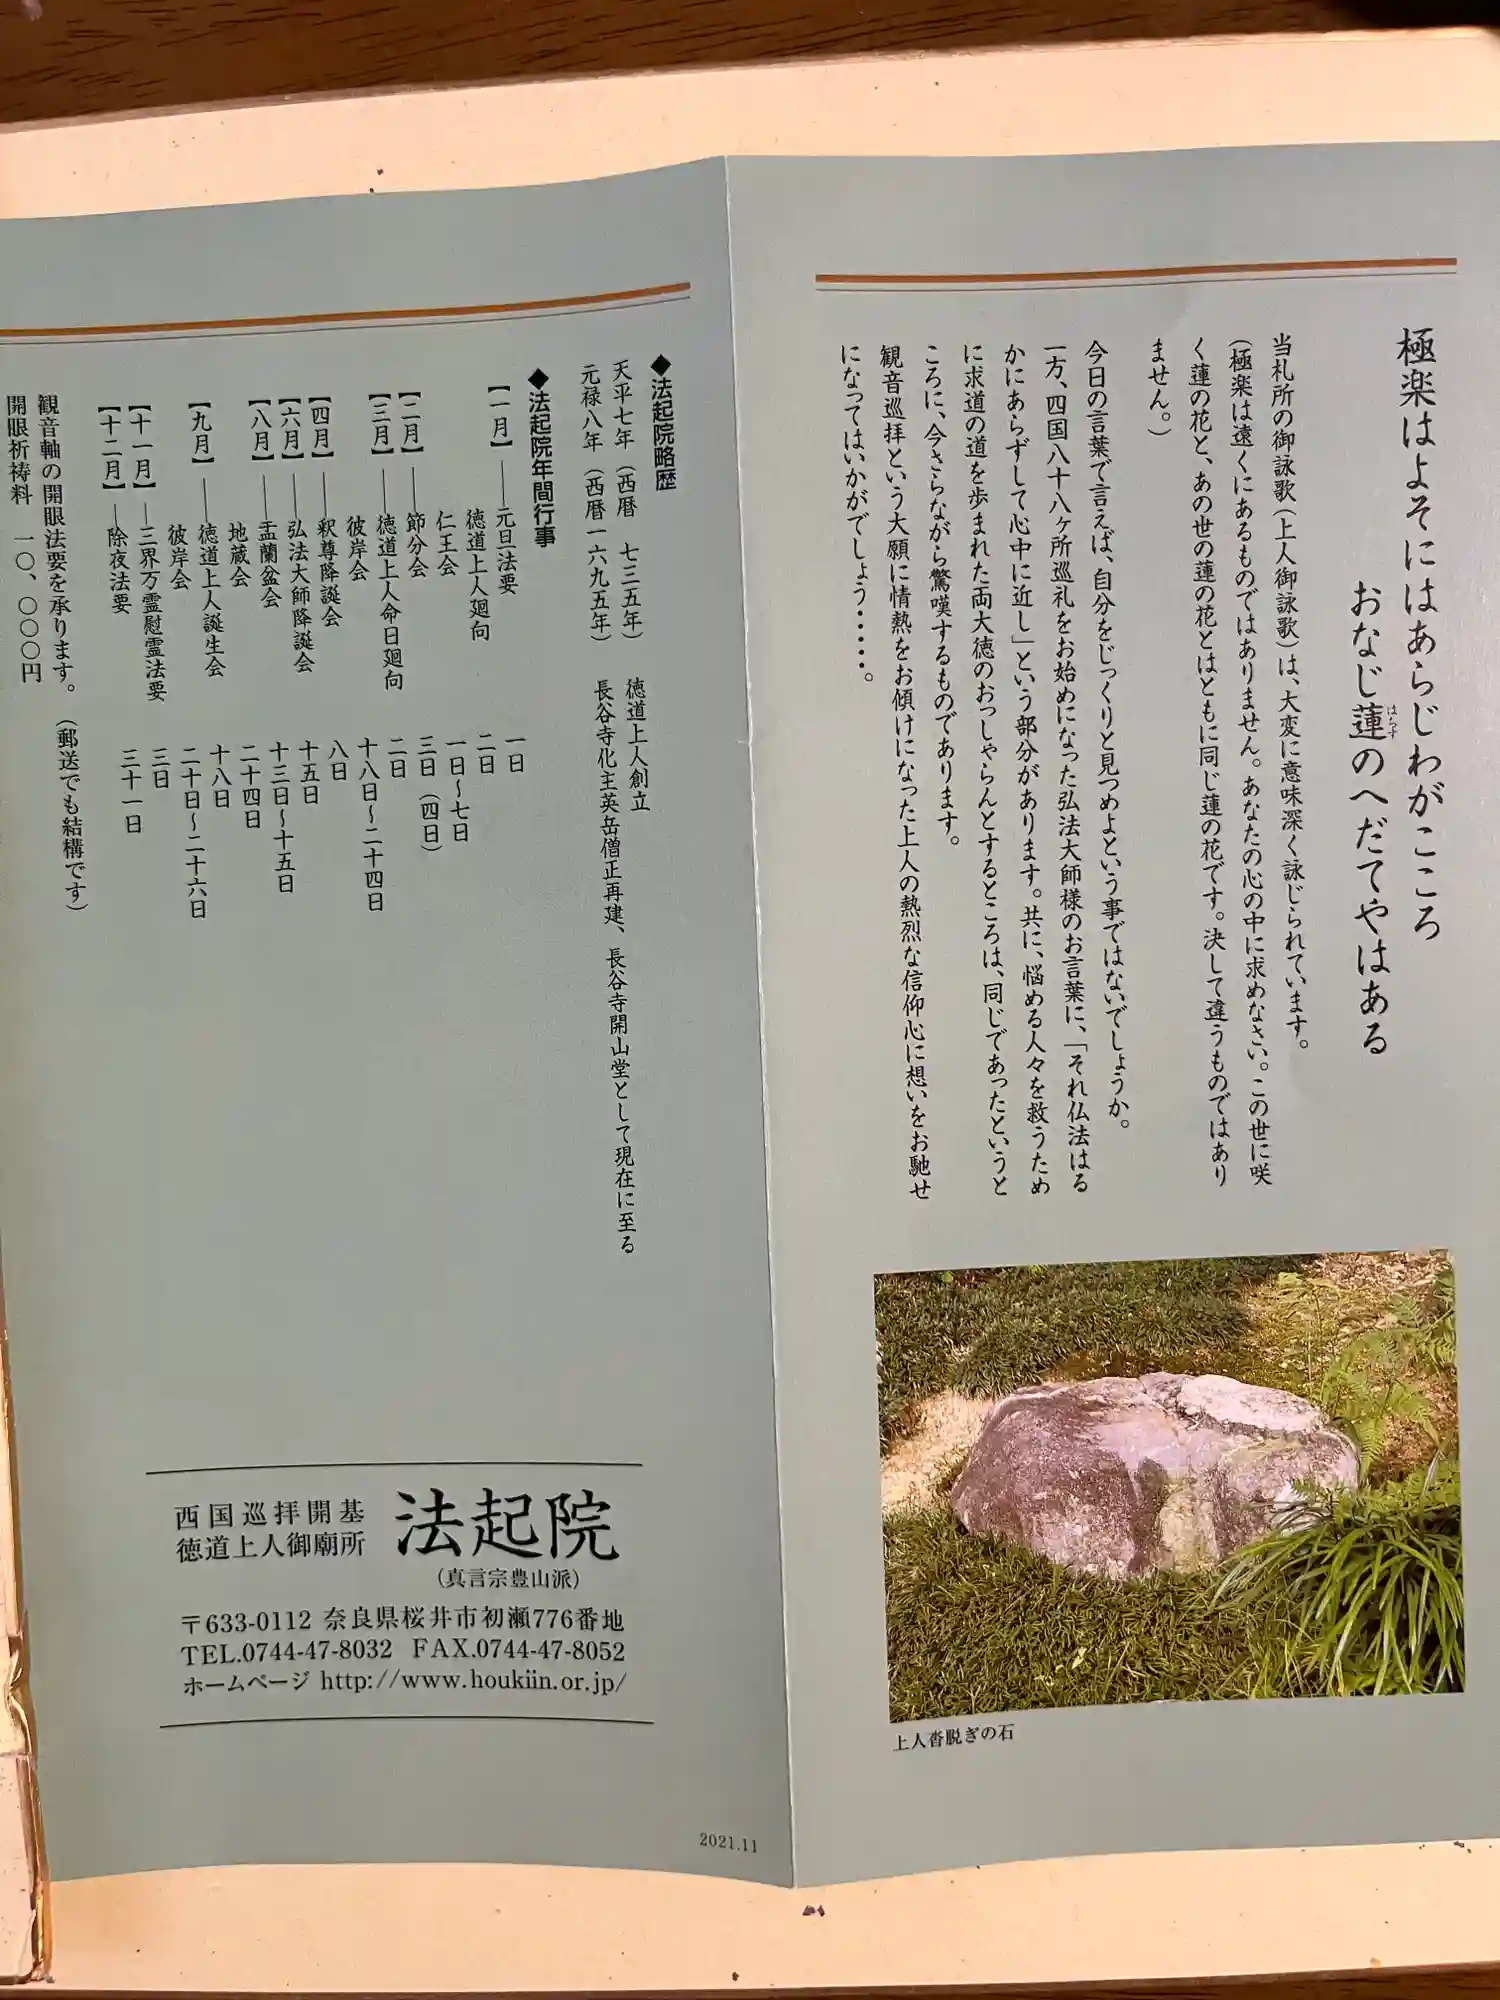 極楽はよそにはあらじわがこころ
おなじ蓮のへだてやはある
はちす
当札所の御詠歌(上人御詠歌)は、大変に意味深く詠じられています。
(極楽は遠くにあるものではありません。あなたの心の中に求めなさい。この世に咲
く蓮の花と、あの世の蓮の花とはともに同じ蓮の花です。決して違うものではあり
ません。)
今日の言葉で言えば、自分をじっくりと見つめよという事ではないでしょうか。
一方、四国八十八ヶ所巡礼をお始めになった弘法大師様のお言葉に、「それ仏法はる
かにあらずして心中に近し」という部分があります。共に、悩める人々を救うため
に求道の道を歩まれた両大徳のおっしゃらんとするところは、同じであったというと
ころに、今さらながら驚嘆するものであります。
観音巡拝という大願に情熱をお傾けになった上人の熱烈な信仰心に想いをお馳せ
になってはいかがでしょう・・・・・。
上人沓脱ぎの石
◆法起院略歴
天平七年(西暦 七三五年) 徳道上人創立
元禄八年(西暦一六九五年) 長谷寺化主英岳僧正再建、長谷寺開山堂として現在に至る
◆法起院年間行事
【一月】――元旦法要 一日
徳道上人廻向 二日
仁王会 一日～七日
【二月】――節分会 三日(四日)
【三月】――徳道上人命日廻向 二日
彼岸会 十八日～二十四日
【四月】――釈尊降誕会 八日
【六月】――弘法大師降誕会 十五日
【八月】――盂蘭盆会 十三日～十五日
地蔵会 二十四日
【九月】――徳道上人誕生会 十八日
彼岸会 二十日～二十六日
【十一月】―三界万霊慰霊法要 三日
【十二月】―除夜法要 三十一日
観音軸の開眼法要を承ります。(郵送でも結構です)
開眼祈祷料 一〇、〇〇〇円
西国巡拝開基
徳道上人御廟所
法起院
(真言宗豊山派)
〒633-0112 奈良県桜井市初瀬776番地
TEL.0744-47-8032 FAX.0744-47-8052
ホームページ http://www.houkiin.or.jp/
2021.11